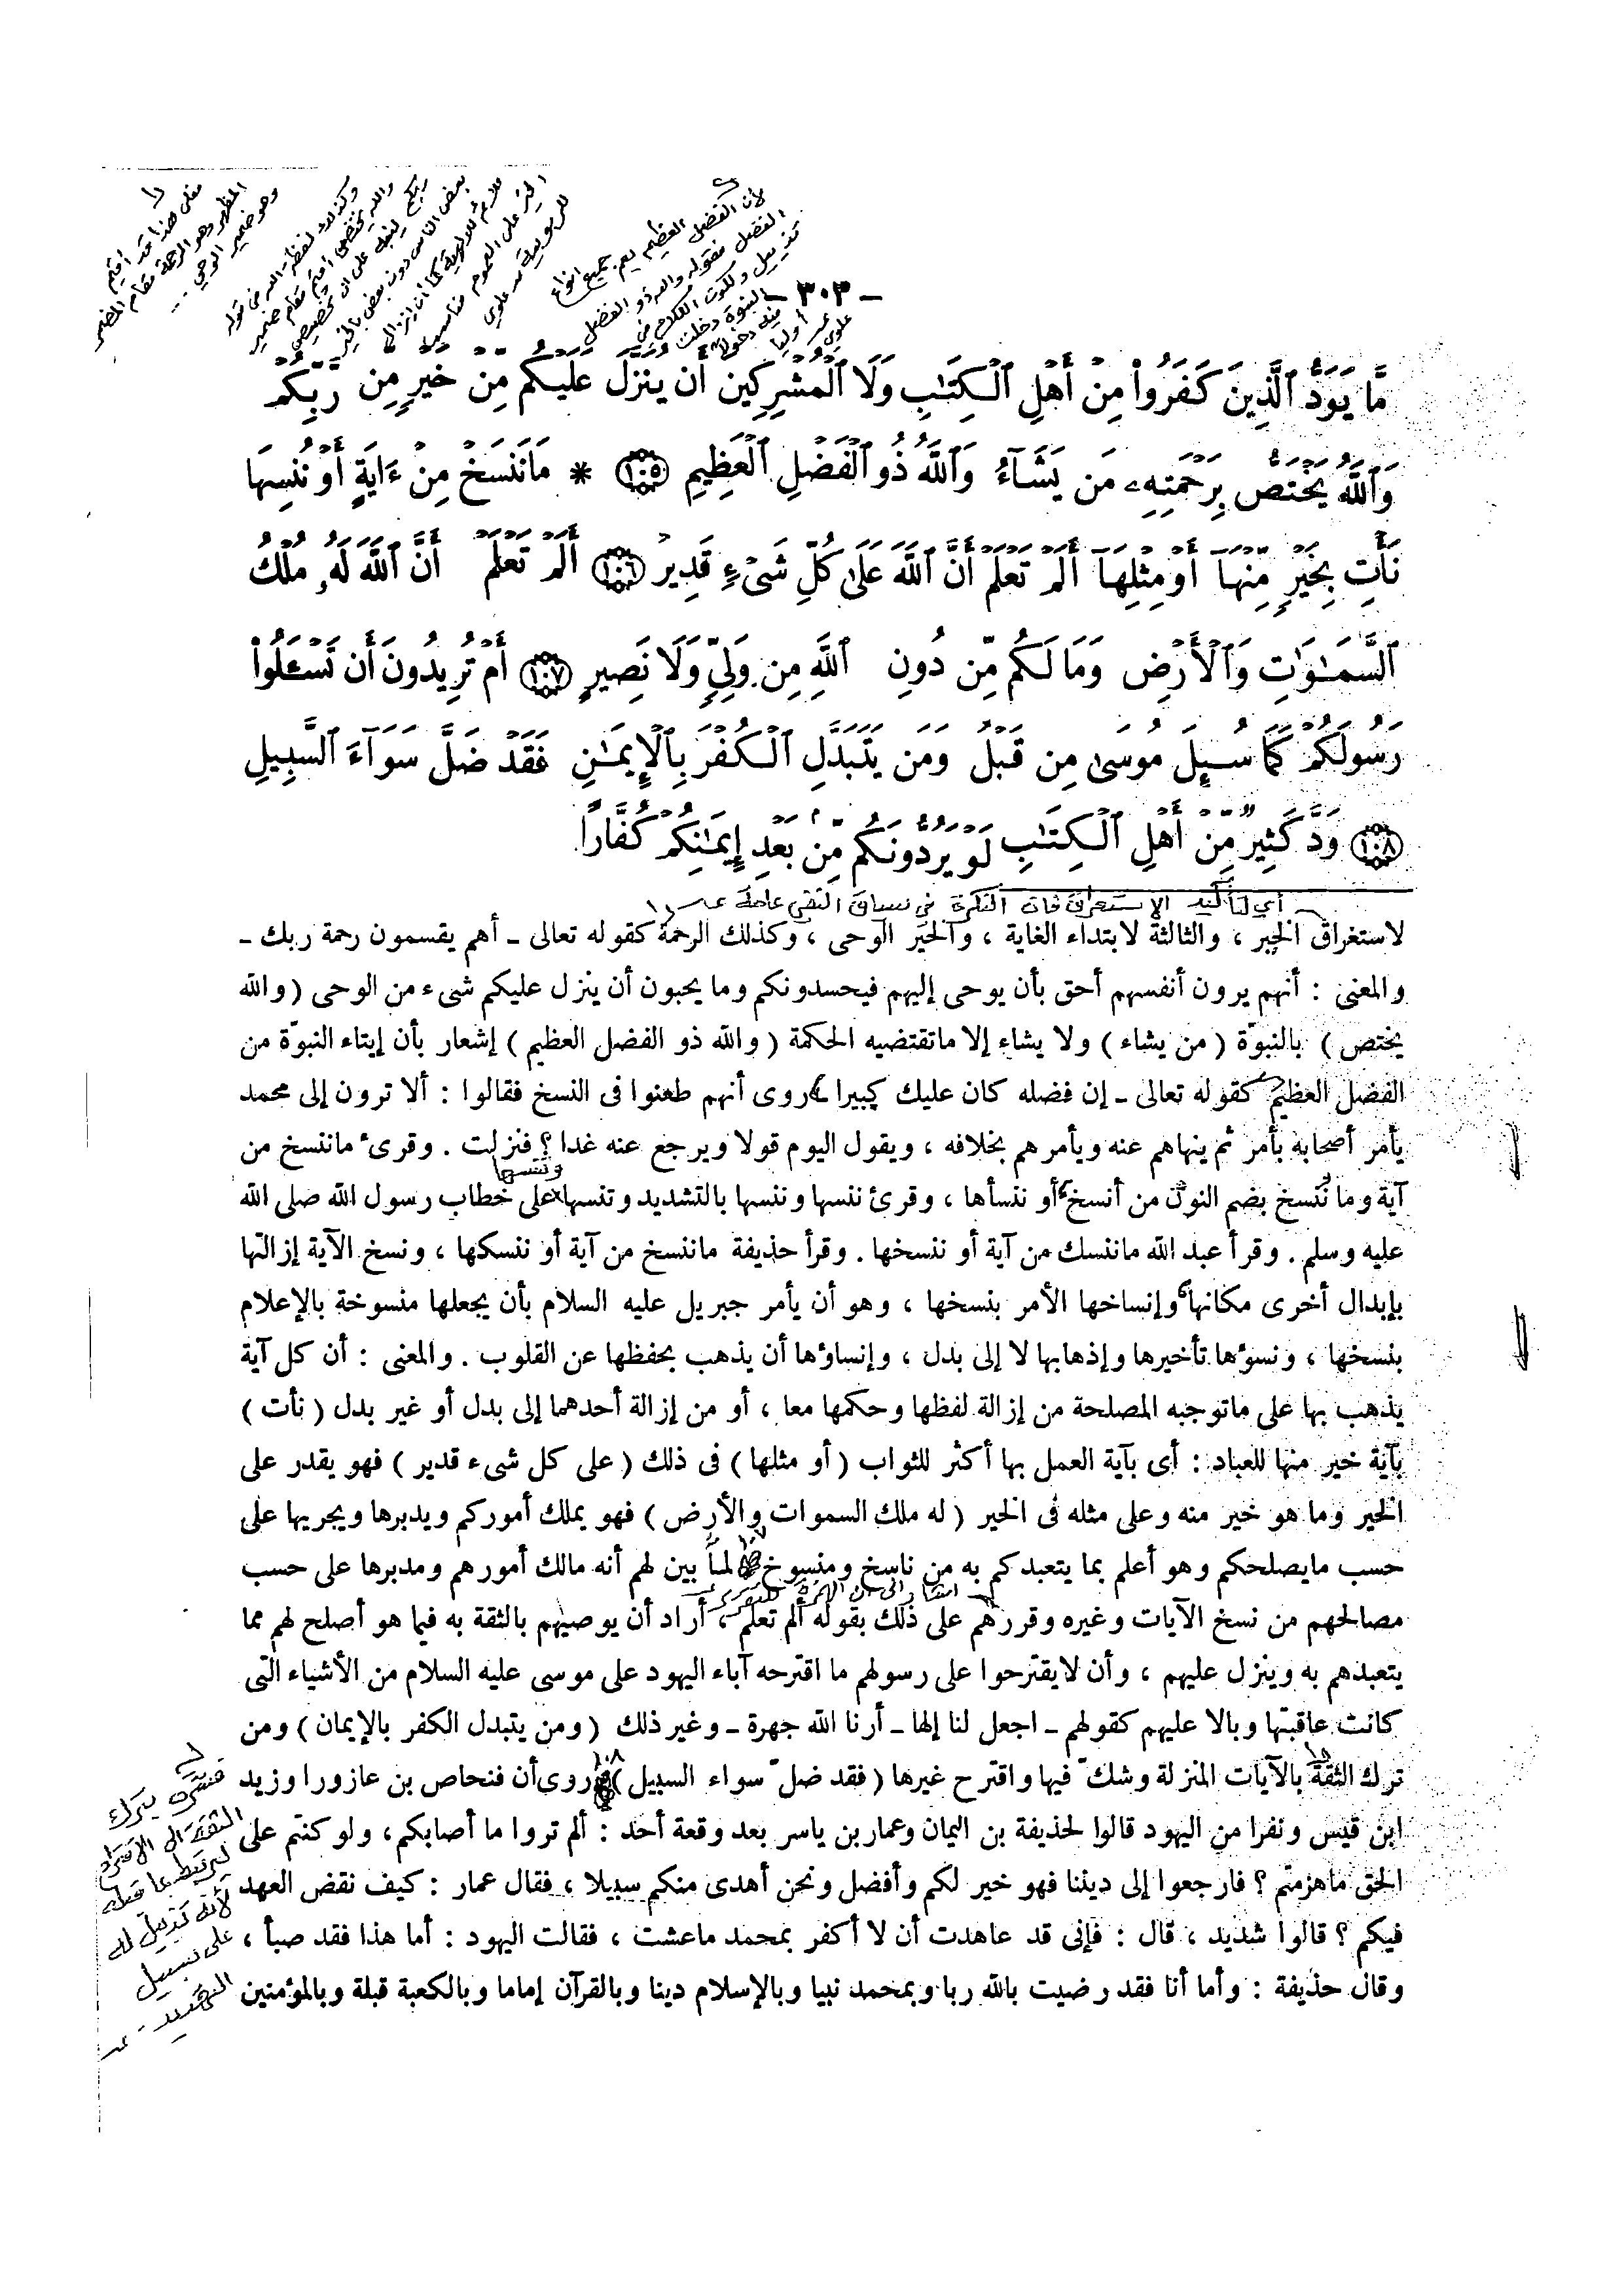 لأن الفضل
العظيم يعم جميع انواع
الفضل فقوله والله ذو الفضل
تذييل
النبوة دخلت
أوليا
علوي
للربوبية علوي
على العموم مناسب
بعض الناس دون بعض بالخير
ربكم لينبه على ان تخصيص
والله يختص أقيم مقام ضمير
وكذلك لفظ الله في قوله
وهو ضمير الوحي ...
المظهر وهو الرحمة مقام المضمر
فعلى هذا فقد اقيم
- ٣٠٣ -
مَّا يَوَدُّ ٱلَّذِينَ كَفَرُوا۟ مِنْ أَهْلِ ٱلْكِتَٰبِ وَلَا ٱلْمُشْرِكِينَ أَن يُنَزَّلَ عَلَيْكُم مِّنْ خَيْرٍ مِّن رَّبِّكُمْ
وَٱللَّهُ يَخْتَصُّ بِرَحْمَتِهِۦ مَن يَشَآءُ وَٱللَّهُ ذُو ٱلْفَضْلِ ٱلْعَظِيمِ ١٠٥ * مَا نَنسَخْ مِنْ ءَايَةٍ أَوْ نُنسِهَا
نَأْتِ بِخَيْرٍ مِّنْهَآ أَوْ مِثْلِهَآ أَلَمْ تَعْلَمْ أَنَّ ٱللَّهَ عَلَىٰ كُلِّ شَىْءٍ قَدِيرٌ ١٠٦ أَلَمْ تَعْلَمْ أَنَّ ٱللَّهَ لَهُۥ مُلْكُ
ٱلسَّمَٰوَٰتِ وَٱلْأَرْضِ وَمَا لَكُم مِّن دُونِ ٱللَّهِ مِن وَلِىٍّ وَلَا نَصِيرٍ ١٠٧ أَمْ تُرِيدُونَ أَن تَسْـَٔلُوا۟
رَسُولَكُمْ كَمَا سُئِلَ مُوسَىٰ مِن قَبْلُ وَمَن يَتَبَدَّلِ ٱلْكُفْرَ بِٱلْإِيمَٰنِ فَقَدْ ضَلَّ سَوَآءَ ٱلسَّبِيلِ
١٠٨ وَدَّ كَثِيرٌ مِّنْ أَهْلِ ٱلْكِتَٰبِ لَوْ يَرُدُّونَكُم مِّنۢ بَعْدِ إِيمَٰنِكُمْ كُفَّارًا
أي لتأكيد الاستغراق فان النكرة في سياق النفي عامة
لاستغراق الخير ، والثالثة لابتداء الغاية ، والخير الوحى ، وكذلك الرحمة كقوله تعالى ـ أهم يقسمون رحمة ربك ـ
والمعنى : أنهم يرون أنفسهم أحق بأن يوحى إليهم فيحسدونكم وما يحبون أن ينزل عليكم شىء من الوحى (والله
يختص) بالنبوّة (من يشاء) ولا يشاء إلا ماتقتضيه الحكمة (والله ذو الفضل العظيم) إشعار بأن إيتاء النبوّة من
الفضل العظيم كقوله تعالى ـ إن فضله كان عليك كبيرا ـ روى أنهم طعنوا فى النسخ فقالوا : ألا ترون إلى محمد
يأمر أصحابه بأمر ثم ينهاهم عنه ويأمرهم بخلافه ، ويقول اليوم قولا ويرجع عنه غدا ؟ فنزلت . وقرئ ماننسخ من
وننسها
آية وما ننسخ بضم النون من أنسخ أو ننسأها ، وقرئ ننسها وننسها بالتشديد وتنسها على خطاب رسول الله صلى الله
عليه وسلم . وقرأ عبد الله ماننسك من آية أو ننسخها . وقرأ حذيفة ماننسخ من آية أو ننسكها ، ونسخ الآية إزالتها
بإبدال أخرى مكانها وإنساخها الأمر بنسخها ، وهو أن يأمر جبريل عليه السلام بأن يجعلها منسوخة بالإعلام
بنسخها ، ونسوءها تأخيرها وإذهابها لا إلى بدل ، وإنساؤها أن يذهب بحفظها عن القلوب . والمعنى : أن كل آية
يذهب بها على ماتوجبه المصلحة من إزالة لفظها وحكمها معا ، أو من إزالة أحدهما إلى بدل أو غير بدل (نأت)
بآية خير منها للعباد : أى بآية العمل بها أكثر للثواب (أو مثلها) فى ذلك (على كل شىء قدير) فهو يقدر على
الخير وما هو خير منه وعلى مثله فى الخير (له ملك السموات والأرض) فهو يملك أموركم ويدبرها ويجريها على
حسب مايصلحكم وهو أعلم بما يتعبدكم به من ناسخ ومنسوخ ١٠٧ لما بين لهم أنه مالك أمورهم ومدبرها على حسب
للتقرير
مصالحهم من نسخ الآيات وغيره وقررهم على ذلك بقوله ألم تعلم ، أراد أن يوصيهم بالثقة به فيما هو أصلح لهم مما
يتعبدهم به وينزل عليهم ، وأن لايقترحوا على رسولهم ما اقترحه آباء اليهود على موسى عليه السلام من الأشياء التى
كانت عاقبتها وبالا عليهم كقولهم ـ اجعل لنا إلها ـ أرنا الله جهرة ـ وغير ذلك (ومن يتبدل الكفر بالإيمان) ومن
ترك الثقة بالآيات المنزلة وشكّ فيها واقترح غيرها (فقد ضلّ سواء السبيل) ١٠٨ روى أن فنحاص بن عازورا وزيد
ابن قيس ونفرا من اليهود قالوا لحذيفة بن اليمان وعمار بن ياسر بعد وقعة أحد : ألم تروا ما أصابكم، ولو كنتم على
الحق ماهزمتم ؟ فارجعوا إلى ديننا فهو خير لكم وأفضل ونحن أهدى منكم سبيلا ، فقال عمار : كيف نقض العهد
فيكم ؟ قالوا شديد ، قال : فإنى قد عاهدت أن لا أكفر بمحمد ماعشت ، فقالت اليهود : أما هذا فقد صبأ ،
وقال حذيفة : وأما أنا فقد رضيت بالله ربا وبمحمد نبيا وبالإسلام دينا وبالقرآن إماما وبالكعبة قبلة وبالمؤمنين
فسره بترك
الثقة الى
ليرتبط بما قبله
لأنه تذييل له
على سبيل